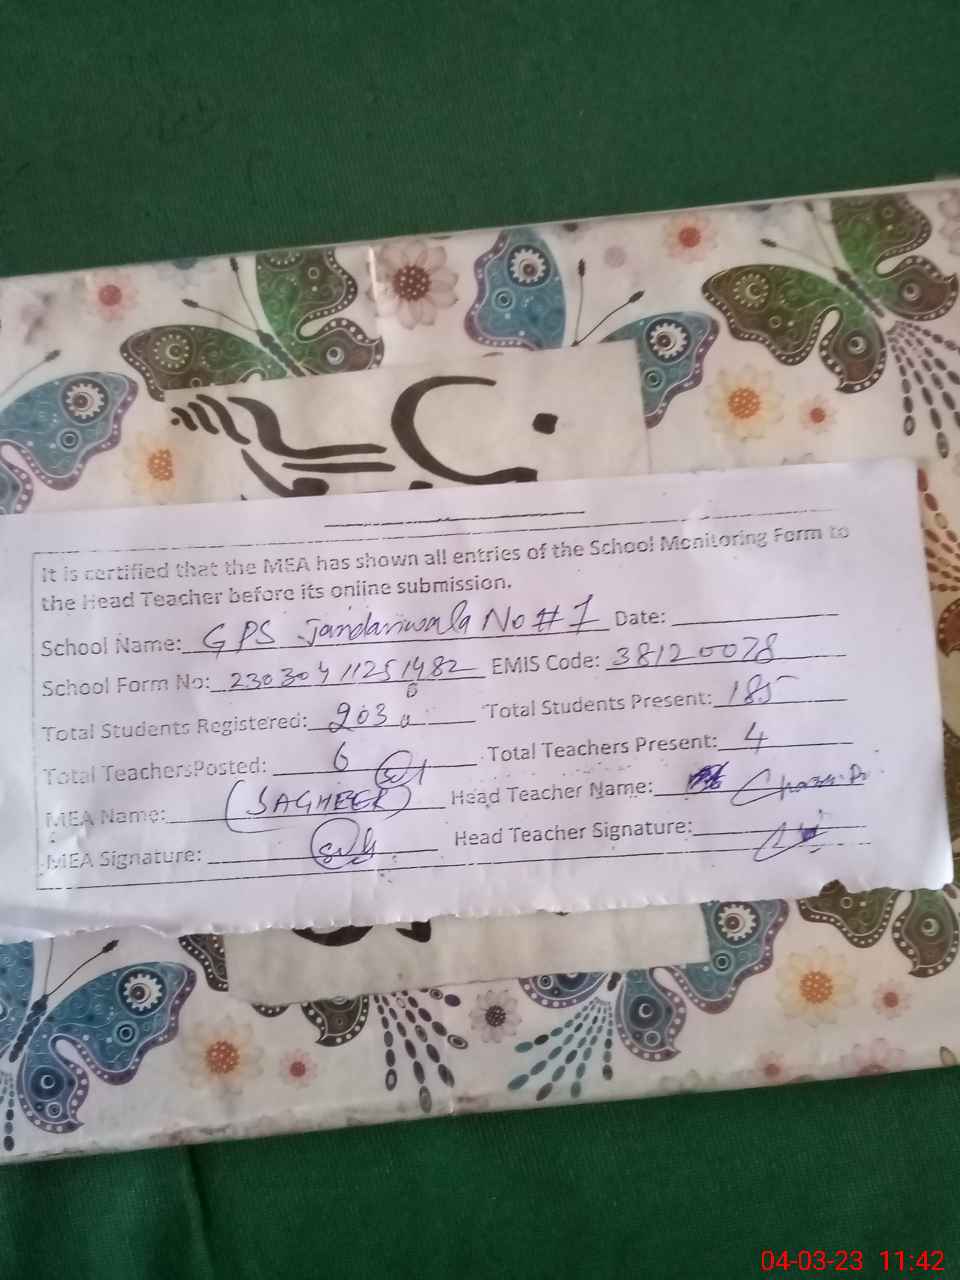 It is certified that the MEA has shown all entries of the School Monitoring Form to
the Head Teacher before its online submission.
School Name: GPS Jandanwala No # 1 Date:
School Form No: 23030411251482 EMIS Code: 38120078
Total Students Registered: 203 Total Students Present: 185
Total TeachersPosted: 6 Total Teachers Present: 4
MEA Name: (SAGHEER) Head Teacher Name:
MEA Signature: Head Teacher Signature:
04-03-23 11:42